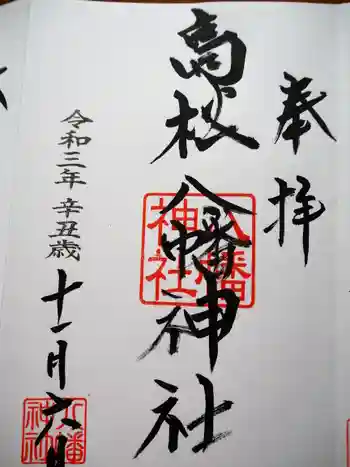 奉拝
高松八幡神社
八幡神社
令和三年辛丑歳十一月六日
八幡神社